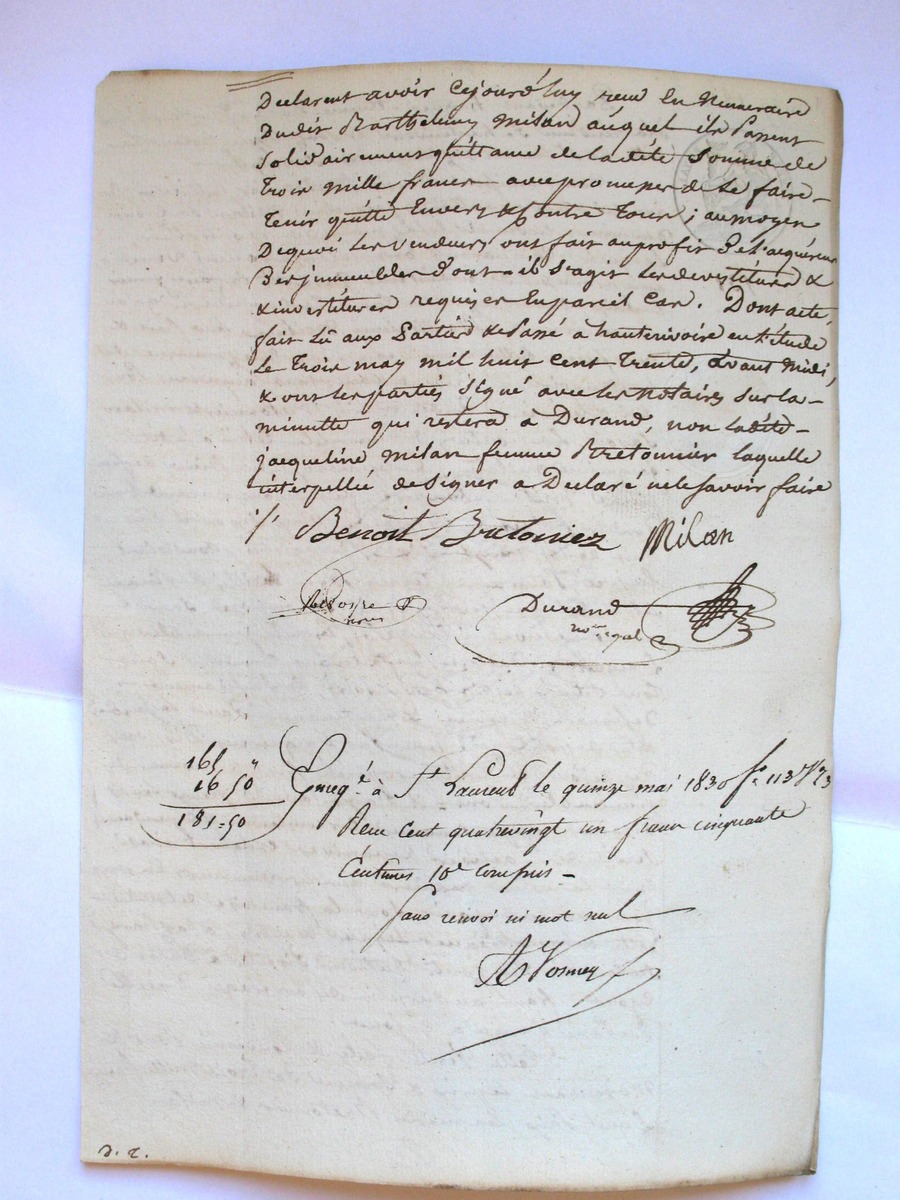 Declarent avoir cejourd'huy reçu en Numeraire
Dudit Barthelemy Milan auquel ils Passent
Solidairement quittance de ladite Somme de
Trois mille francs avec promesse de le faire
Tenir quitte Envers & Contre Tous ; au moyen
Dequoi les vendeurs ont fait au profit de l'acquéreur
Des immeubles dont il s'agit les devestitures &
& investitures requises En pareil Cas. Dont acte,
fait Lû aux Parties & Passé à hauterivoire en l'étude
Le Trois may mil huit cent Trente, avant Midi,
& ont les parties Signé avec les notaires sur la
minutte qui restera à Durand, non ladite
jacqueline milan femme Bretonnier laquelle
interpellée de Signer a Declaré ne le Savoir faire
Benoit Bretonniez Milan
Durand
165 "
16 50
181=50
Enreg.é à St Laurent le quinze mai 1830 fo 113
Recu Cent quatrevingt un francs cinquante
Centimes 10e compris
Sans renvoi ni mot nul
D. R.